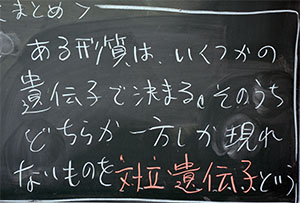 まとめ>
ある形質は、いくつかの
遺伝子で決まる。そのうち
どちらか一方しか現れ
ないものを対立遺伝子という